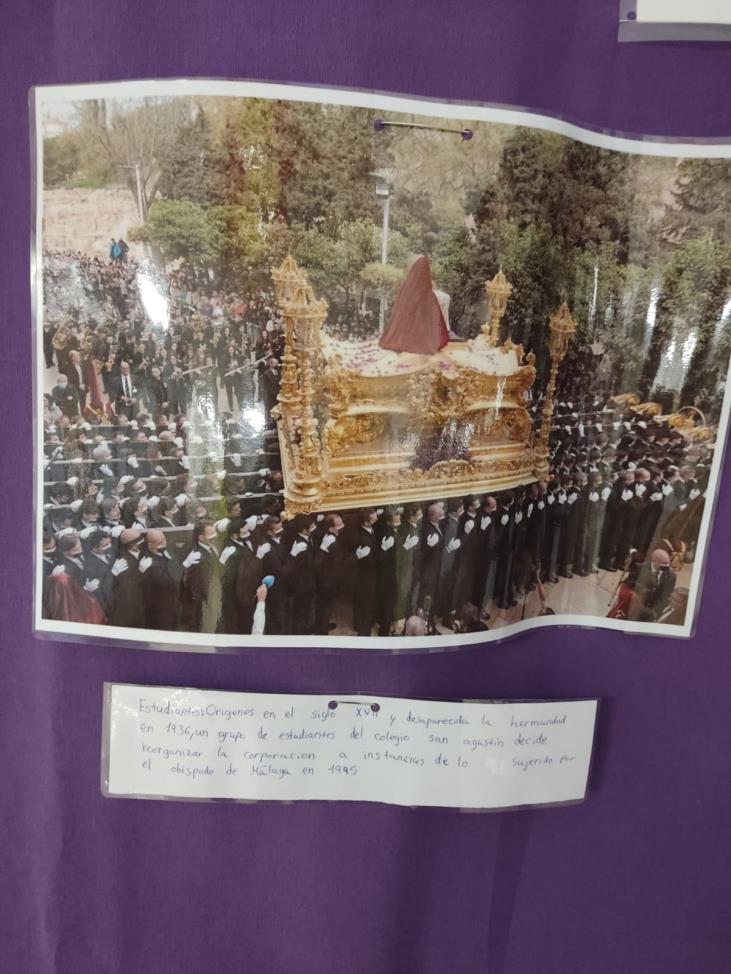 Estudiantes: Origenes en el siglo XVII y desaparecida la hermandad
en 1936, un grupo de estudiantes del colegio san agustín decide
reorganizar la corporacion a instancias de lo sujerido por
el obispado de Málaga en 1945